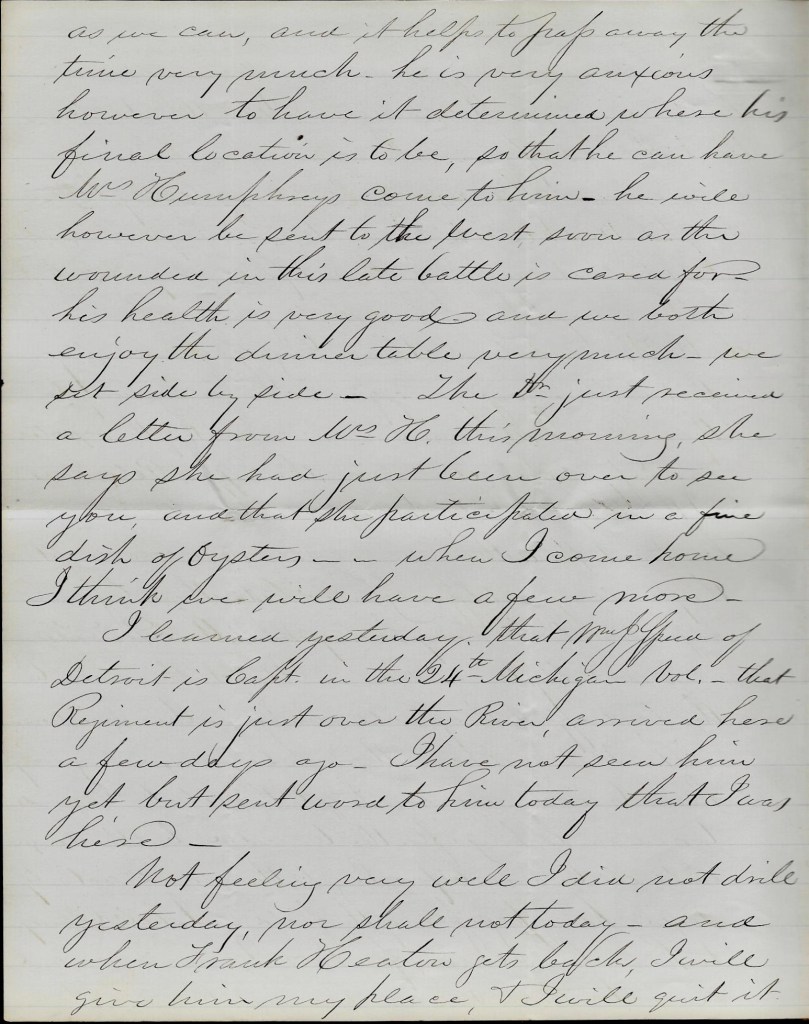 as we can, and it helps to pass away the
time very much - he is very anxious
however to have it determined where his
final location is to be, so that he can have
Mrs Humphreys come to him - he will
however be sent to the West soon as the
wounded in this late battle is cared for -
his health is very good and we both
enjoy the dinner table very much - we
sit side by side - The Dr. just received
a letter from Mrs H. this morning, she
says she had just been over to see
you, and that she participated in a fine
dish of Oysters - - when I come home
I think we will have a few more -
I learned yesterday that Wm J Speed of
Detroit is Capt. in the 24th Michigan Vol. - that
Regiment is just over the River, arrived here
a few days ago - I have not seen him
yet but sent word to him today that I was
here -
Not feeling very well I did not drill
yesterday, nor shall not today - and
when Frank Heaton gets back, I will
give him my place, & I will quit it